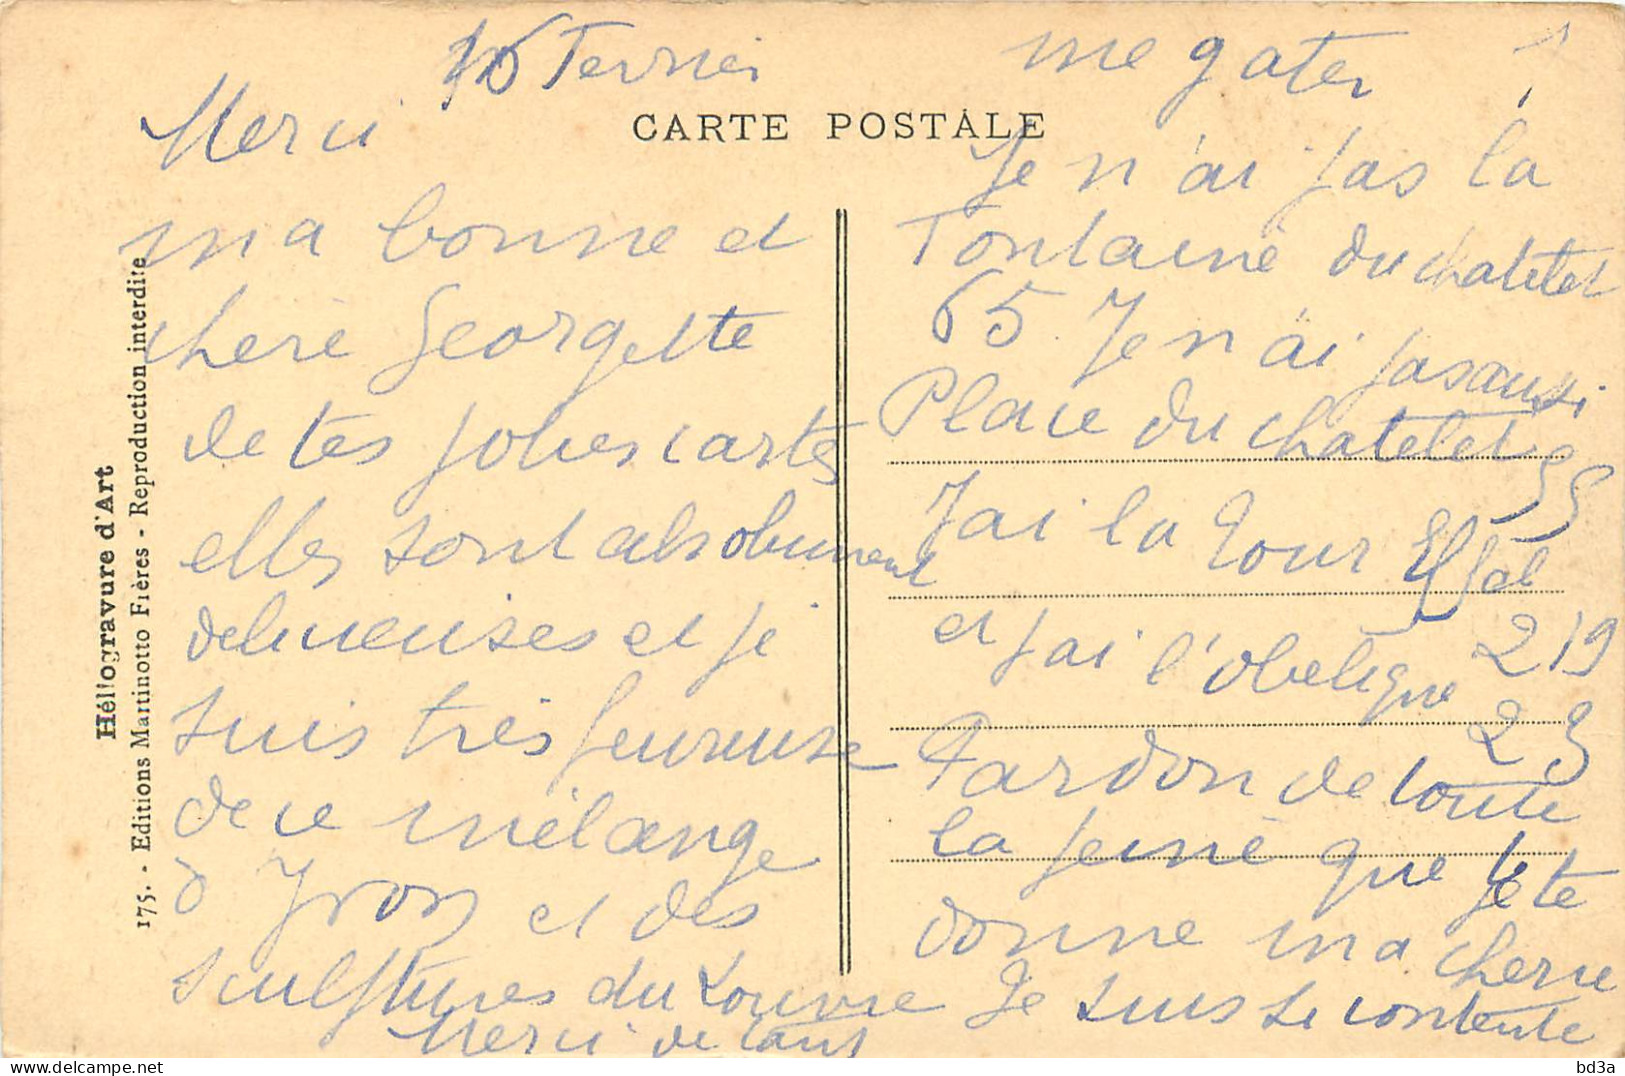 16 Fevrier
CARTE POSTALE
Merci
ma bonne et
chere Georgette
de tes jolies cartes
elles sont absolument
delicieuses et je
suis très heureuse
de ce mélange
d'Yvon et des
sculptures du Louvre
Merci de tant
me gater !
Je n'ai pas la
Fontaine du chatelet
65 Je n'ai pas aussi
Place du chatelet 55
J'ai la Tour Eiffel
219
et j'ai l'obelique
23
Pardon de toute
la peine que je te
donne ma cherie
Je suis si contente
Héliogravure d'Art
175. - Editions Martinotto Frères - Reproduction interdite
delcampe.net
bd3a